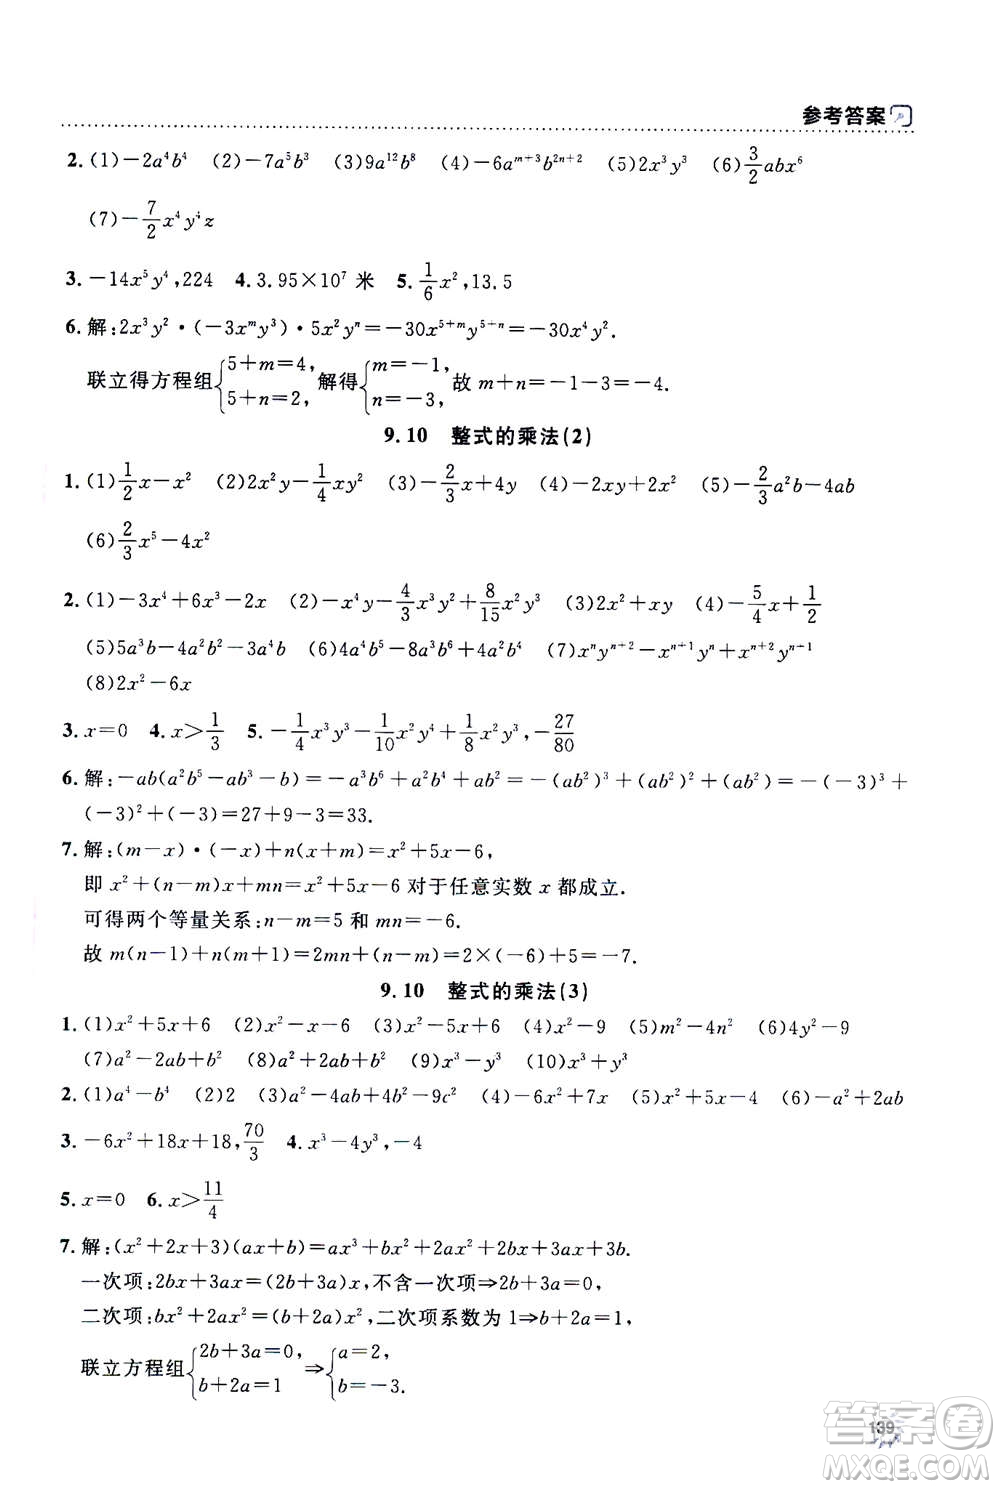 参考答案
2. (1)－2a⁴b⁴　(2)－7a⁵b³　(3)9a¹²b⁸　(4)－6aᵐ⁺³b²ⁿ⁺²　(5)2x³y³　(6)3/2abx⁶
(7)－7/2x⁴y⁴z
3. －14x⁵y⁴,224　4. 3.95×10⁷ 米　5. 1/6x²,13.5
6. 解:2x³y²·(－3xᵐy³)·5x²yⁿ＝－30x⁵⁺ᵐy⁵⁺ⁿ＝－30x⁴y².
联立得方程组{5＋m＝4, 5＋n＝2, 解得{m＝－1, n＝－3, 故 m＋n＝－1－3＝－4.
9.10　整式的乘法(2)
1. (1)1/2x－x²　(2)2x²y－1/4xy²　(3)－2/3x＋4y　(4)－2xy＋2x²　(5)－2/3a²b－4ab
(6)2/3x⁵－4x²
2. (1)－3x⁴＋6x³－2x　(2)－x⁴y－4/3x³y²＋8/15x²y³　(3)2x²＋xy　(4)－5/4x＋1/2
(5)5a³b－4a²b²－3a⁴b　(6)4a²b⁵－8a³b⁶＋4a²b²　(7)xⁿyⁿ⁺²－xⁿ⁺¹yⁿ＋xⁿ⁺²yⁿ⁻¹
(8)2x²－6x
3. x＝0　4. x＞1/3　5. －1/4x³y³－1/10x²y⁴＋1/8x²y³,－27/80
6. 解:－ab(a²b⁵－ab³－b)＝－a³b⁶＋a²b⁴＋ab²＝－(ab²)³＋(ab²)²＋ab²＝－(－3)³＋
(－3)²＋(－3)＝27＋9－3＝33.
7. 解:(m－x)·(－x)＋n(x＋m)＝x²＋5x－6,
即 x²＋(n－m)x＋mn＝x²＋5x－6 对于任意实数 x 都成立.
可得两个等量关系:n－m＝5 和 mn＝－6.
故 m(n－1)＋n(m＋1)＝2mn＋(n－m)＝2×(－6)＋5＝－7.
9.10　整式的乘法(3)
1. (1)x²＋5x＋6　(2)x²－x－6　(3)x²－5x＋6　(4)x²－9　(5)m²－4n²　(6)4y²－9
(7)a²－2ab＋b²　(8)a²＋2ab＋b²　(9)x³－y³　(10)x³＋y³
2. (1)a⁴－b⁴　(2)2　(3)a²－4ab＋4b²－9c²　(4)－6x²＋7x　(5)x²＋5x－4　(6)－a²＋2ab
3. －6x²＋18x＋18,70/3　4. x³－4y³,－4
5. x＝0　6. x＞11/4
7. 解:(x²＋2x＋3)(ax＋b)＝ax³＋bx²＋2ax²＋2bx＋3ax＋3b.
一次项:2bx＋3ax＝(2b＋3a)x,不含一次项⇒2b＋3a＝0,
二次项:bx²＋2ax²＝(b＋2a)x²,二次项系数为 1⇒b＋2a＝1,
联立方程组{2b＋3a＝0, b＋2a＝1 ⇒{a＝2, b＝－3.
139
答案卷
MXQE.COM